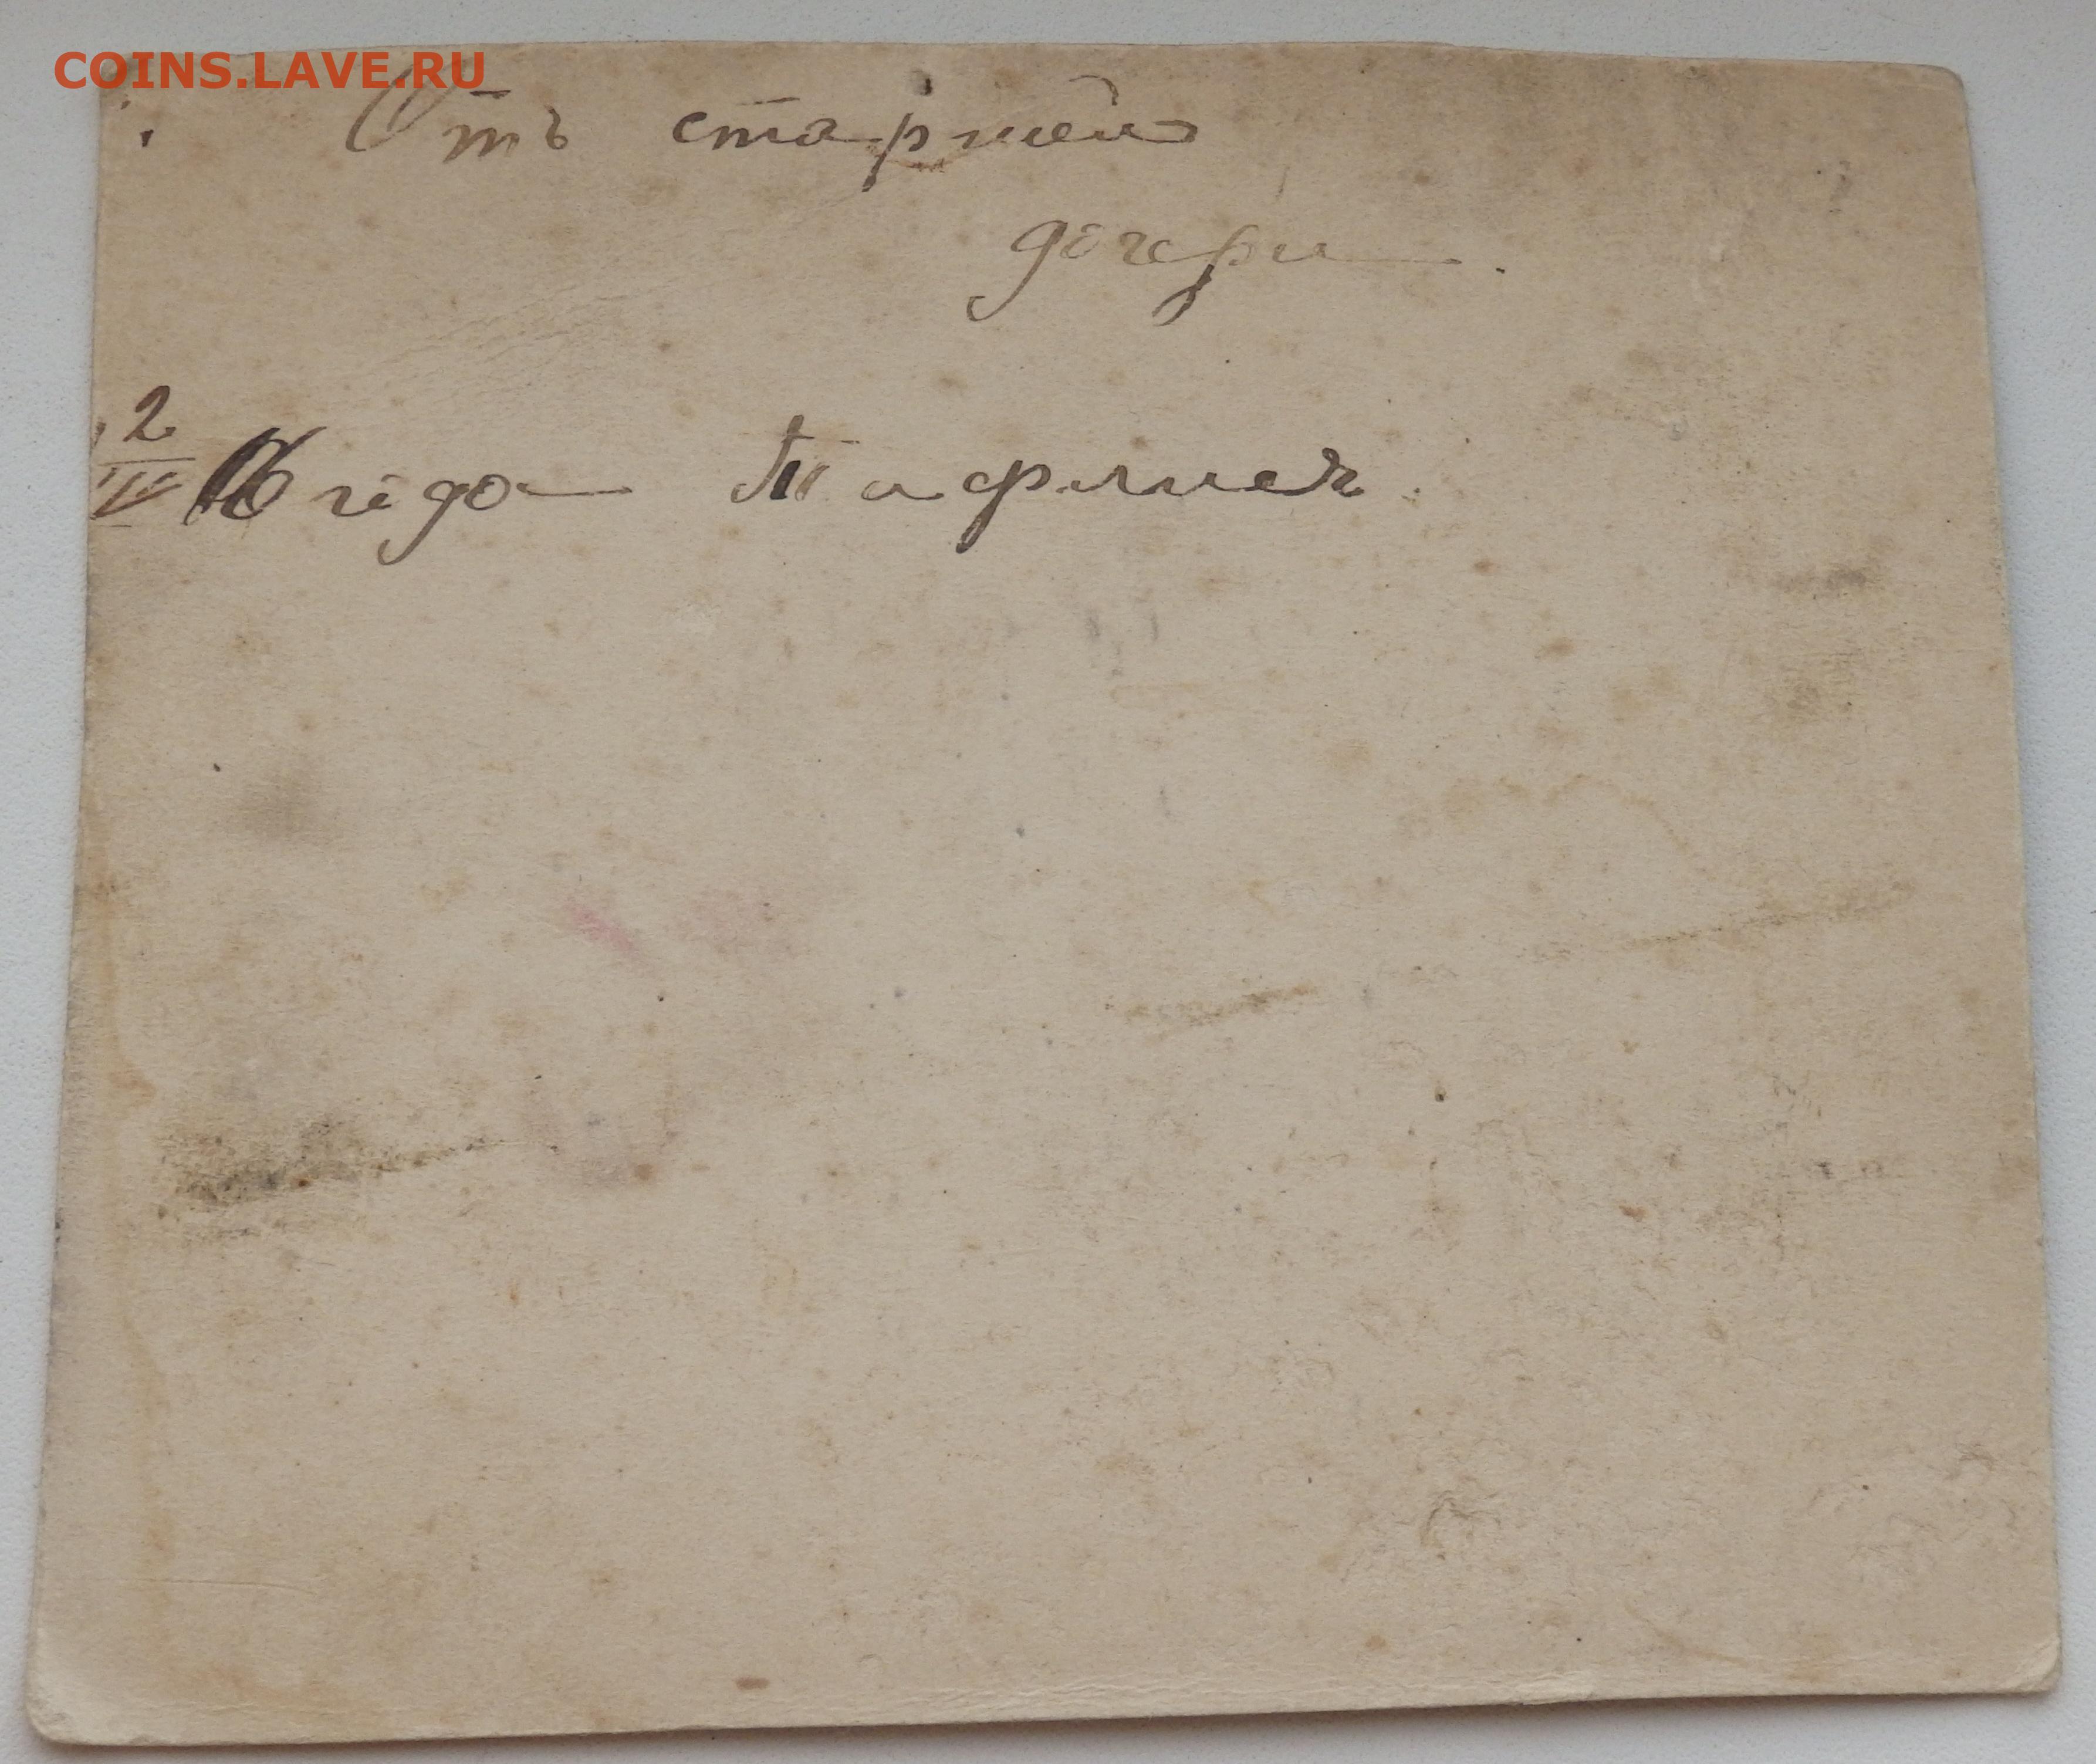 COINS.LAVE.RU
Отъ старшей
дочери.
2
IV года Тифлисъ.